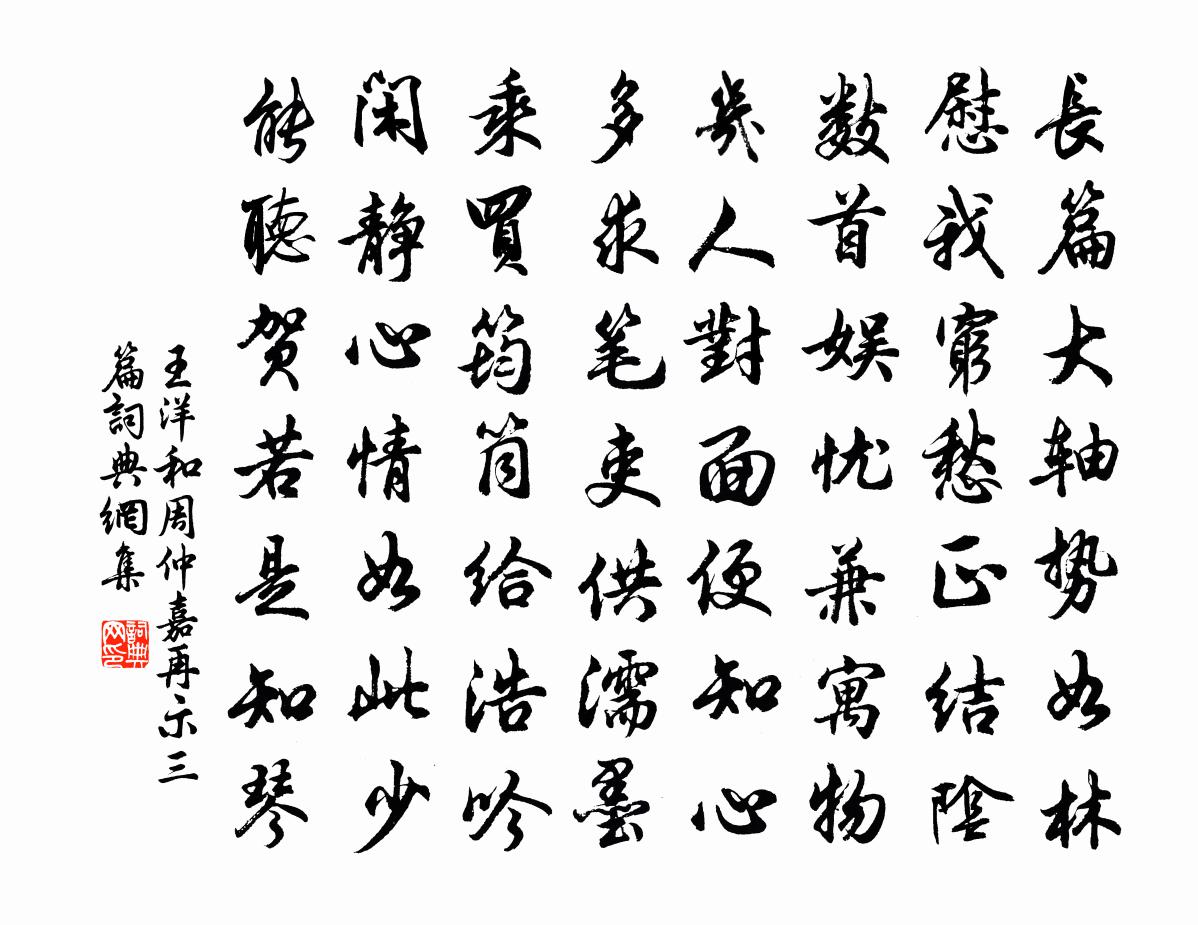 長篇大轴势如林
慰我窮愁正结陰
数首娱忧兼寓物
幾人對面便知心
多求笔吏供濡墨
乘買筠筒给浩吟
閑静心情如此少
能聽贺若是知琴
王洋和周仲嘉再示三
篇詞典網集
詞典网印